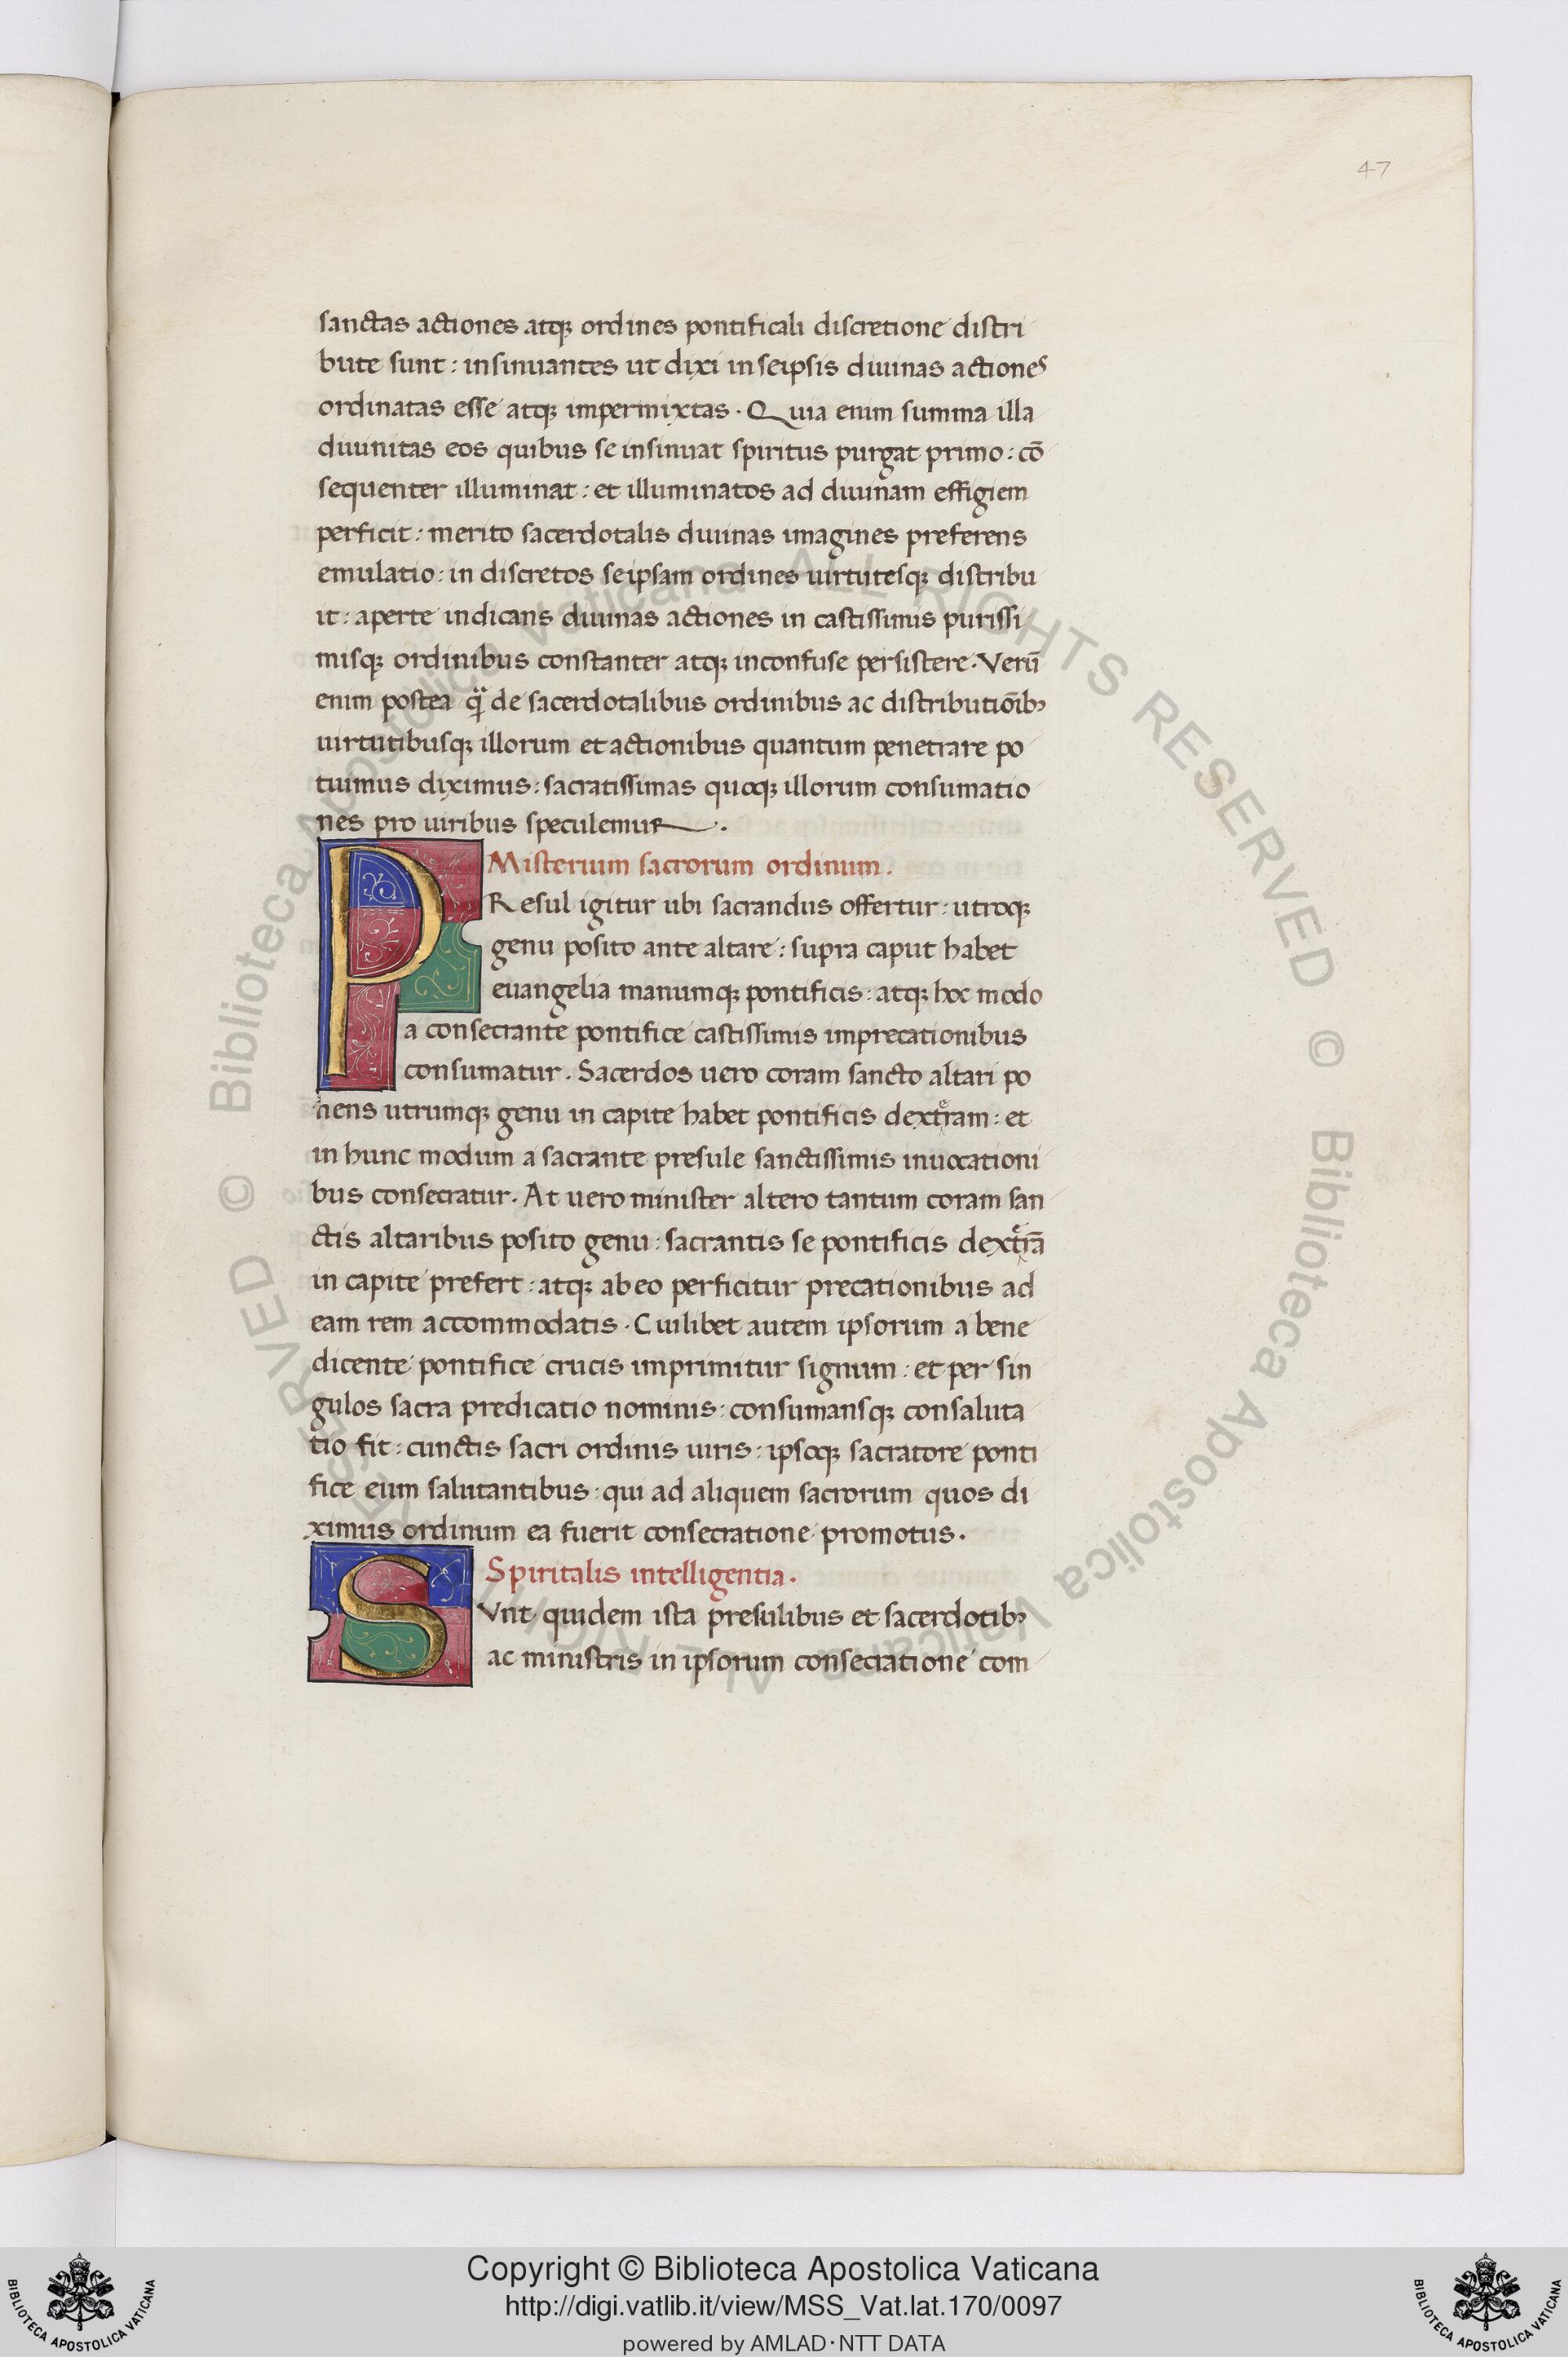 47
sanctas actiones atqꝫ ordines pontificali discretione distri
bute sunt : insinuantes ut dixi in seipsis diuinas actiones
ordinatas esse atqꝫ impermixtas . Quia enim summa illa
diuinitas eos quibus se insinuat spiritus purgat primo : cō
sequenter illuminat : et illuminatos ad diuinam effigiem
perficit : merito sacerdotalis diuinas imagines preferens
emulatio : in discretos seipsam ordines uirtutesqꝫ distribu
it : aperte indicans diuinas actiones in castissimis purissi
misqꝫ ordinibus constanter atqꝫ inconfuse persistere . Verū
enim postea q̈ de sacerdotalibus ordinibus ac distributiōibꝫ
uirtutibusqꝫ illorum et actionibus quantum penetrare po
tuimus diximus : sacratissimas quoqꝫ illorum consumatio
nes pro uiribus speculemur .
Misterium sacrorum ordinum .
PResul igitur ubi sacrandus offertur : utroqꝫ
genu posito ante altare : supra caput habet
euangelia manumqꝫ pontificis : atqꝫ hoc modo
a consecrante pontifice castissimis imprecationibus
consumatur . Sacerdos uero coram sancto altari po
nens utrumqꝫ genu in capite habet pontificis dextͤram : et
in hunc modum a sacrante presule sanctissimis inuocationi
bus consecratur . At uero minister altero tantum coram san
ctis altaribus posito genu : sacrantis se pontificis dextͤrā
in capite prefert : atqꝫ ab eo perficitur precationibus ad
eam rem accommodatis . Cuilibet autem ipsorum a bene
dicente pontifice crucis imprimitur signum : et per sin
gulos sacra predicatio nominis : consumansqꝫ consaluta
tio fit : cunctis sacri ordinis uiris : ipsoqꝫ sacratore ponti
fice eum salutantibus : qui ad aliquem sacrorum quos di
ximus ordinum ea fuerit consecratione promotus .
Spiritalis intelligentia .
SVnt quidem ista presulibus et sacerdotibꝫ
ac ministris in ipsorum consecratione com
© Biblioteca Apostolica Vaticana ALL RIGHTS RESERVED © Biblioteca Apostolica Vaticana ALL RIGHTS RESERVED
Copyright © Biblioteca Apostolica Vaticana
http://digi.vatlib.it/view/MSS_Vat.lat.170/0097
powered by AMLAD·NTT DATA
BIBLIOTECA APOSTOLICA VATICANA
BIBLIOTECA APOSTOLICA VATICANA